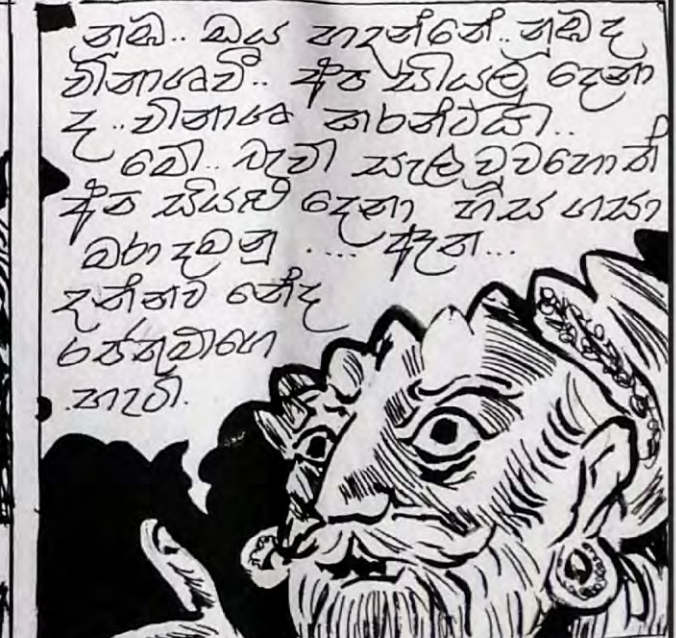 නුඹ.. ඔය හදන්නේ.. නුඹ ද
විනාශවී.. අප සියලු දෙනා
ද.. විනාශ කරන්ටයි..
මේ.. බැව් සැල වුවහොත්
අප සියළු දෙනා හිස ගසා
මරා දමනු .... ඇත...
දන්නව නේද
රජතුමාගෙ
හැටි.